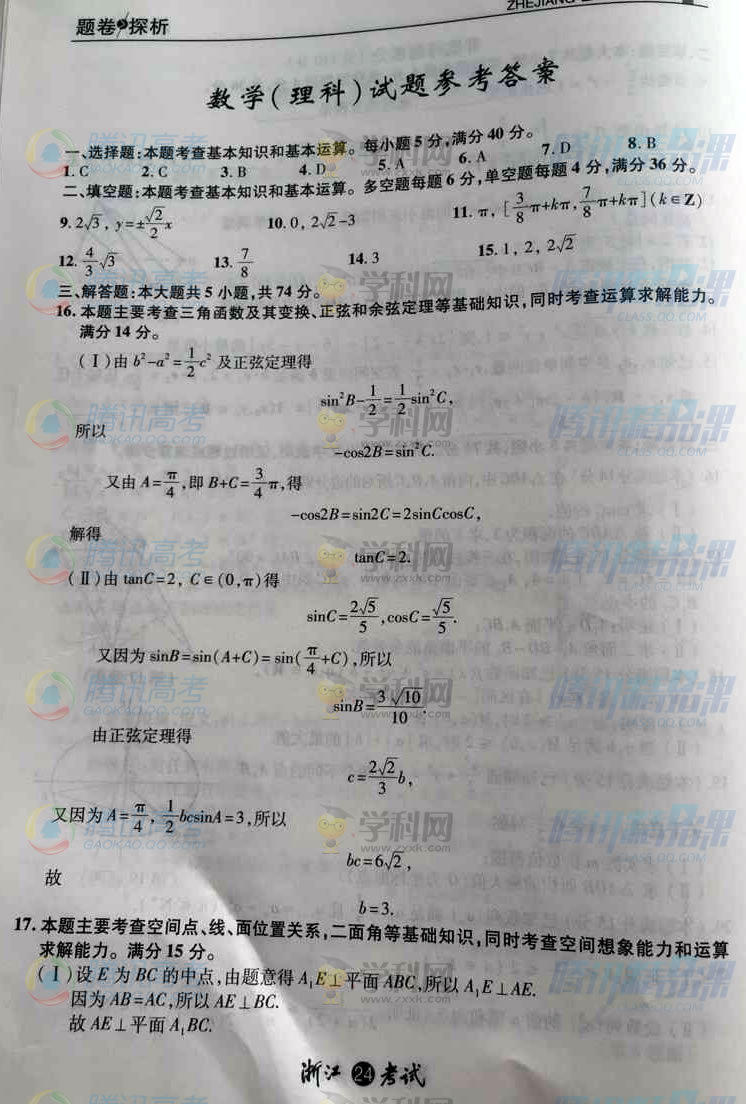 ZHEJIANG
题卷与探析
数学(理科)试题参考答案
一、选择题:本题考查基本知识和基本运算。每小题5分,满分40分。
1.C 2.C 3.B 4.D 5.A 6.A 7.D 8.B
二、填空题:本题考查基本知识和基本运算。多空题每题6分,单空题每题4分,满分36分。
9.2√3, y=±√2/2 x 10.0, 2√2-3 11.π, [3/8π+kπ, 7/8π+kπ](k∈Z)
12. 4/3√3 13. 7/8 14.3 15.1, 2, 2√2
三、解答题:本大题共5小题,共74分。
16.本题主要考查三角函数及其变换、正弦和余弦定理等基础知识,同时考查运算求解能力。
满分14分。
(Ⅰ)由 b²-a²=1/2c² 及正弦定理得
sin²B-1/2=1/2sin²C,
所以
-cos2B=sin²C.
又由 A=π/4,即 B+C=3/4π,得
-cos2B=sin2C=2sinCcosC,
解得
tanC=2.
(Ⅱ)由 tanC=2, C∈(0,π)得
sinC=2√5/5,cosC=√5/5.
又因为 sinB=sin(A+C)=sin(π/4+C),所以
sinB=3√10/10.
由正弦定理得
c=2√2/3 b,
又因为 A=π/4, 1/2bcsinA=3,所以
bc=6√2,
故
b=3.
17.本题主要考查空间点、线、面位置关系,二面角等基础知识,同时考查空间想象能力和运算
求解能力。满分15分。
(Ⅰ)设 E 为 BC 的中点,由题意得 A₁E⊥平面 ABC,所以 A₁E⊥AE.
因为 AB=AC,所以 AE⊥BC.
故 AE⊥平面 A₁BC.
浙江 24 考试
腾讯高考
GAOKAO.QQ.COM
学科网
www.zxxk.com
腾讯精品课
CLASS.QQ.COM